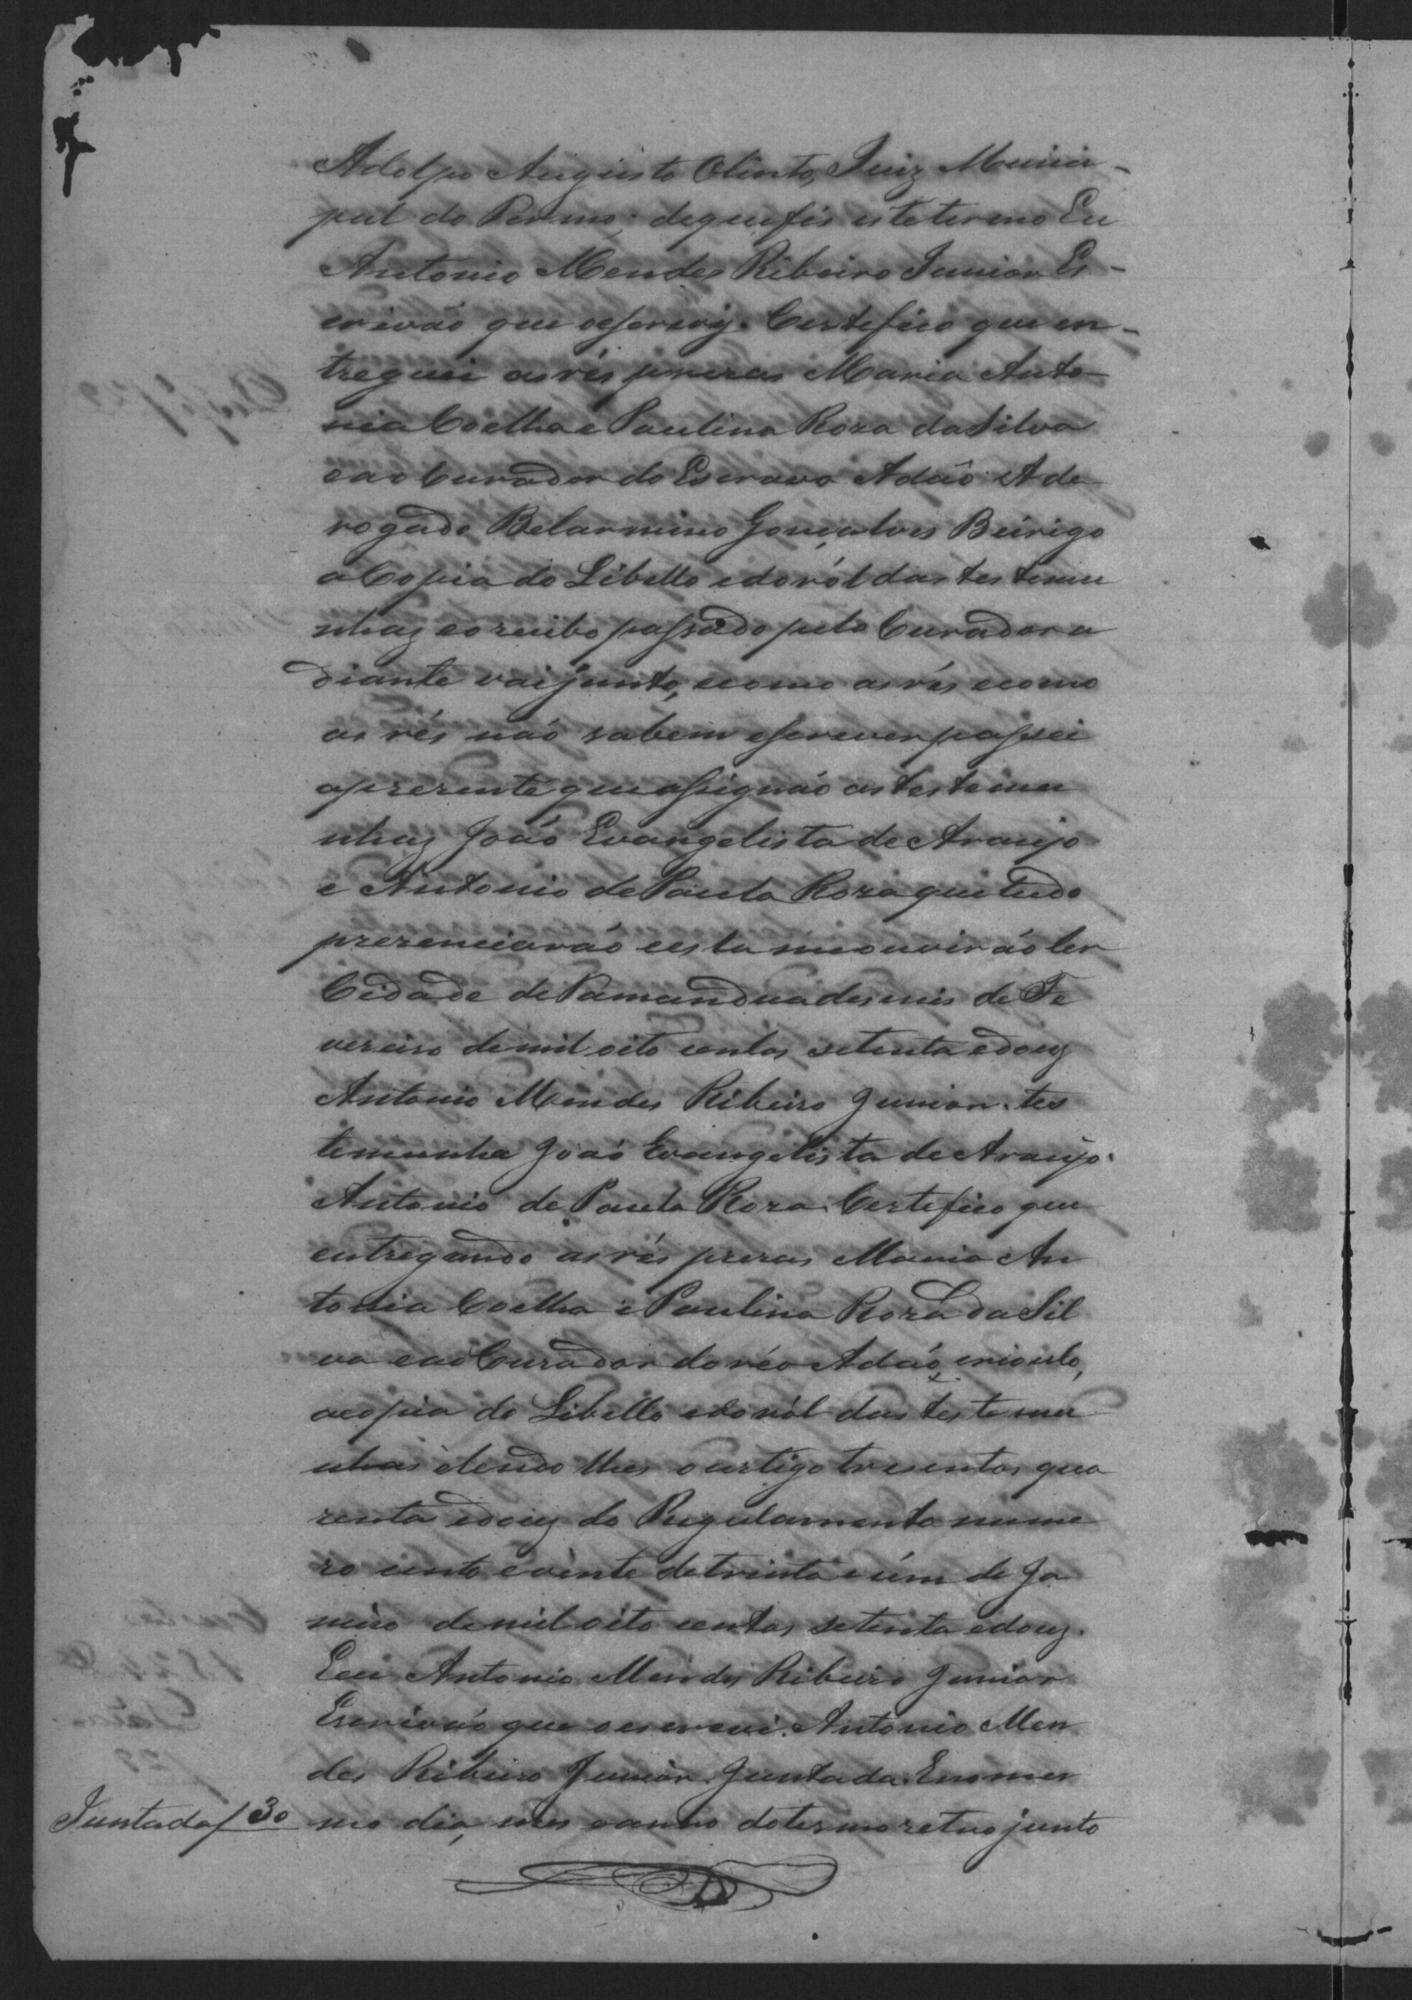 Adolpho Augusto Olinto, Juiz Munici-
pal do Termo; de que fis este termo Eu
Antonio Mendes Ribeiro Junior Es-
crivão que escrevy. Certefico que en-
treguei as rés prezas Maria Anto-
nia Coelha e Paulina Roza da Silva
e ao Curador do Escravo Adão Ade
vogado Belarmino Gonçalves Beirigo
a Copia do Libello e do ról das testemu
nhaz e o recibo passado pelo Curador a
diante vai junto, e como as rés e como
as rés não sabem escrever passei
a prezente que assignão as testemu
nhaz João Evangelista de Araujo
e Antonio de Paula Roza que tudo
prezenciarão e esta me ouvirão ler
Cidade de Tamandua des seis de Fe
vereiro de mil oito centos setenta e douz
Antonio Mendes Ribeiro Junior. tes
temunha João Evangelista de Araujo.
Antonio de Paula Roza. Certefico que
entregando as rés prezas Maria An
tonia Coelha e Paulina Roza da Sil
va e ao Curador do réo Adão, crioulo,
a copia do Libello e do ról das testemu
nhas e lendo lhes o artigo tresentos qua
renta e douz do Regulamento nume
ro cento e vinte de trinta e úm de Ja
neiro de mil oito centos setenta e douz.
Eu Antonio Mendes Ribeiro Junior
Escrivão que o escrevi. Antonio Men
des Ribeiro Junior. Juntada. Eno mes
Juntada f 30 mo dia, mes e anno do termo retro junto